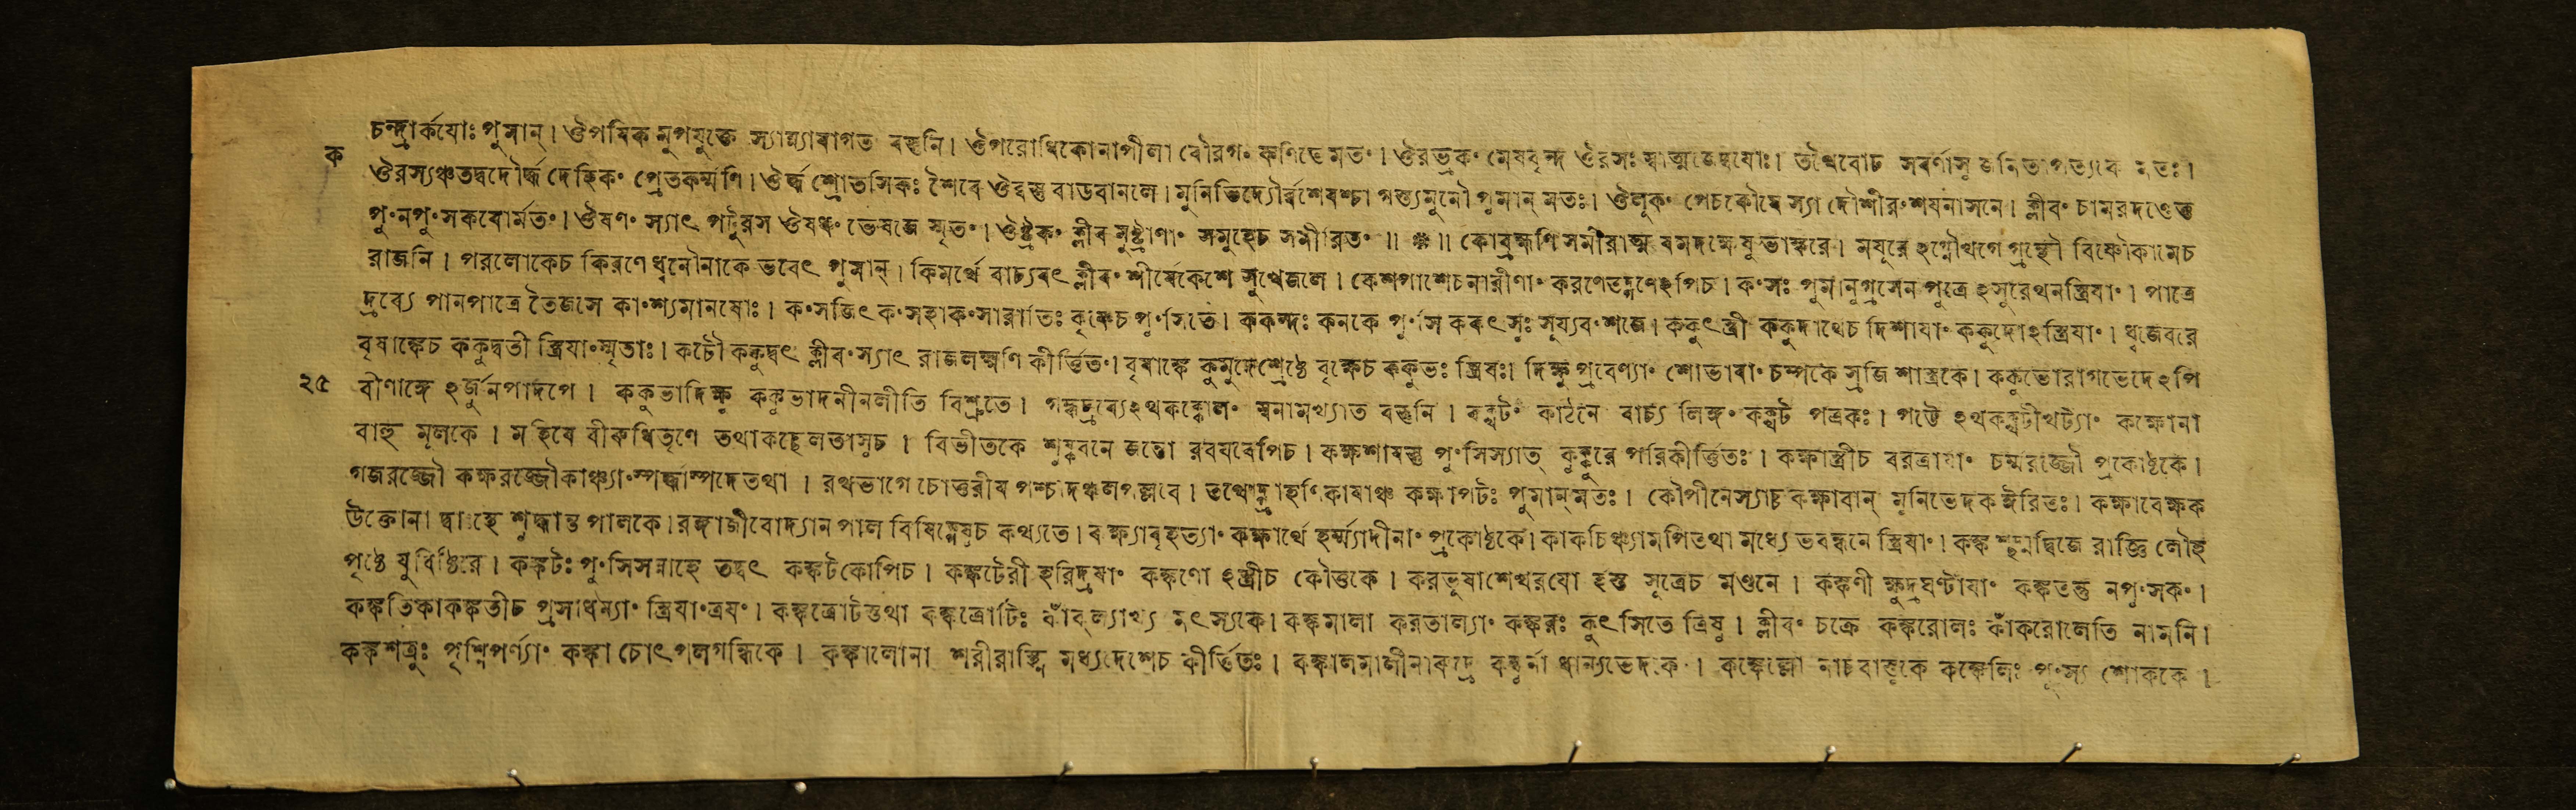 চন্দ্রার্কযোঃ পুমান্। ঔপযিক মুপযুক্তে স্যান্ন্যাযাগত বস্তুনি। ঔপরোধিকোনাপীলা মতং। ঔরভ্রকং মেষবৃন্দ ঔরসঃ
ক
ঔরস্যঞ্চতদ্বদৌর্দ্ধ দেহিকং প্রেতকর্ম্মণি। ঔর্দ্ধ শ্রোতসিকঃ শৈবে ঔর্বস্তু বাডবানলে। মুনিভিদ্যৌর্ব্বশেযশ্চা গস্ত্যমুনৌ পুমান্ মতঃ। ঔলুকং পেচকৌঘে স্যা দৌশীরং শযনাসনে। ক্লীবং চামরদণ্ডেত
পুংনপুংসকযোর্মতং। ঔষণং স্যাৎ পটুরস ঔষধং ভেষজে স্মৃতং। ঔষ্ট্রকং ক্লীব মুষ্ট্রাণাং সমুহেচ সমীরিতং॥ ॥ কোব্রহ্মণি সমীরাত্ম যমদক্ষেষু ভাস্করে। মযুরে ঽগ্নৌথগে গ্রন্থৌ বিষ্ণৌকামেচ
রাজনি। পরলোকেচ কিরণে ধ্বনৌনাকে ভবেৎ পুমান্। কিমর্থে বাচ্যবৎ ক্লীবং শীর্ষেকেশে সুখেজলে। কেশপাশেচনারীণাং করণেতদ্গণেঽপিচ। কংসঃ পুমানুগ্রসেন পুত্রে ঽসুরেথনস্ত্রিযাং। পাত্রে
দ্রব্যে পানপাত্রে তৈজসে কাংশ্যমানযোঃ। কংসজিৎ কংসহাকংসারাতিঃ কৃষ্ণেচ পুংসিতে। ককন্দঃ কনকে পুংসি ককুৎসুঃ সূয্যবংশজে। ককুৎস্ত্রী ককুদাথেচ দিশাযাং ককুদোঽস্ত্রিযাং। ধ্বজেবরে
বৃষাঙ্কেচ ককুদ্বতী স্ত্রিযাংস্মৃতাঃ। কটৌ ককুদ্বৎ ক্লীবংস্যাৎ রাজলক্ষ্মণি কীর্ত্তিতং। বৃষাঙ্কে কুমুদেশ্রেষ্ঠে বৃক্ষেচ ককুভঃ স্ত্রিযঃ। দিক্ষু প্রবেণ্যাং শোভাযাং চম্পকে স্রজি শাস্ত্রকে। ককুভোরাগভেদেঽপি
২৫ বীণাঙ্গে ঽর্জুনপাদপে। ককুভাদিক্ষু ককুভাদনীনলীতি বিশ্রুতে। গন্ধদ্রব্যেঽথকক্কোলং স্বনামখ্যাত বস্তুনি। কক্খটং কাঠনে বাচ্য লিঙ্গং কক্খট পত্রকঃ। পট্টে ঽথকক্খটীথট্যাং কক্ষোনা
বাহু মূলকে। মহিষে বীরুধিতৃণে তথাকচ্ছেলতাসুচ। বিভীতকে শুষ্কবনে জন্তো রবযবেপিচ। কক্ষশাযস্তু পুংসিস্যাত্ কুক্কুরে পরিকীর্ত্তিতঃ। কক্ষাস্ত্রীচ বরত্রাযাং চর্ম্মরজ্জৌ প্রকোষ্ঠকে।
গজরজ্জৌ কক্ষরজ্জৌকাঞ্চ্যাংস্পর্দ্ধাস্পদেতথা। রথভাগে চোত্তরীয পশ্চাদঞ্চলপল্লবে। কক্ষাপটঃ পুমান্মতঃ। কৌপীনেস্যাচ কক্ষাবান্ মুনিভেদকঈরিতঃ। কক্ষাবেক্ষক
উক্তোনা দ্বাঃস্থে শুদ্ধান্ত পালকে। রঙ্গাজীবোদ্যান পাল কথ্যতে। কক্ষ্যাবৃহত্যাং কক্ষার্থে হর্ম্ম্যাদীনাং প্রকোষ্ঠকে। কাকচিঞ্চ্যামপিতথা মধ্যে ভবন্ধনে স্ত্রিযাং। কঙ্ক রাজ্ঞি লৌহ
পৃষ্ঠে যুধিষ্ঠিরে। কঙ্কটঃ পুংসিসন্নাহে তদ্বৎ কঙ্কটকোপিচ। কঙ্কটেরী হরিদ্রযাং কঙ্কণো ঽস্ত্রীচ কৌতুকে। করভুষাশেখরযো র্হস্ত সূত্রেচ মণ্ডনে। কঙ্কণী ক্ষুদ্রঘণ্টাযাং কঙ্কতন্তু নপুংসকং।
কঙ্কতিকাকঙ্কতীচ প্রসাধন্যাং স্ত্রিযাংত্রযং। কঙ্কত্রোটস্তথা কঙ্কত্রোটিঃ মৎস্যকে। কঙ্কমালা করতাল্যাং কঙ্করঃ কুৎসিতে ত্রিষু। ক্লীবং চক্রে কঙ্করোলঃ কাঁকরোলেতি নামনি।
কঙ্কশত্রুঃ পৃশ্নিপর্ণ্যাং কঙ্কা চোৎপলগন্ধিকে। কঙ্কালোনা শরীরাস্থ্নি মধ্যদেশেচ কীর্ত্তিতঃ। কঙ্কালমালীনা কঙ্কেলিঃ শোককে।